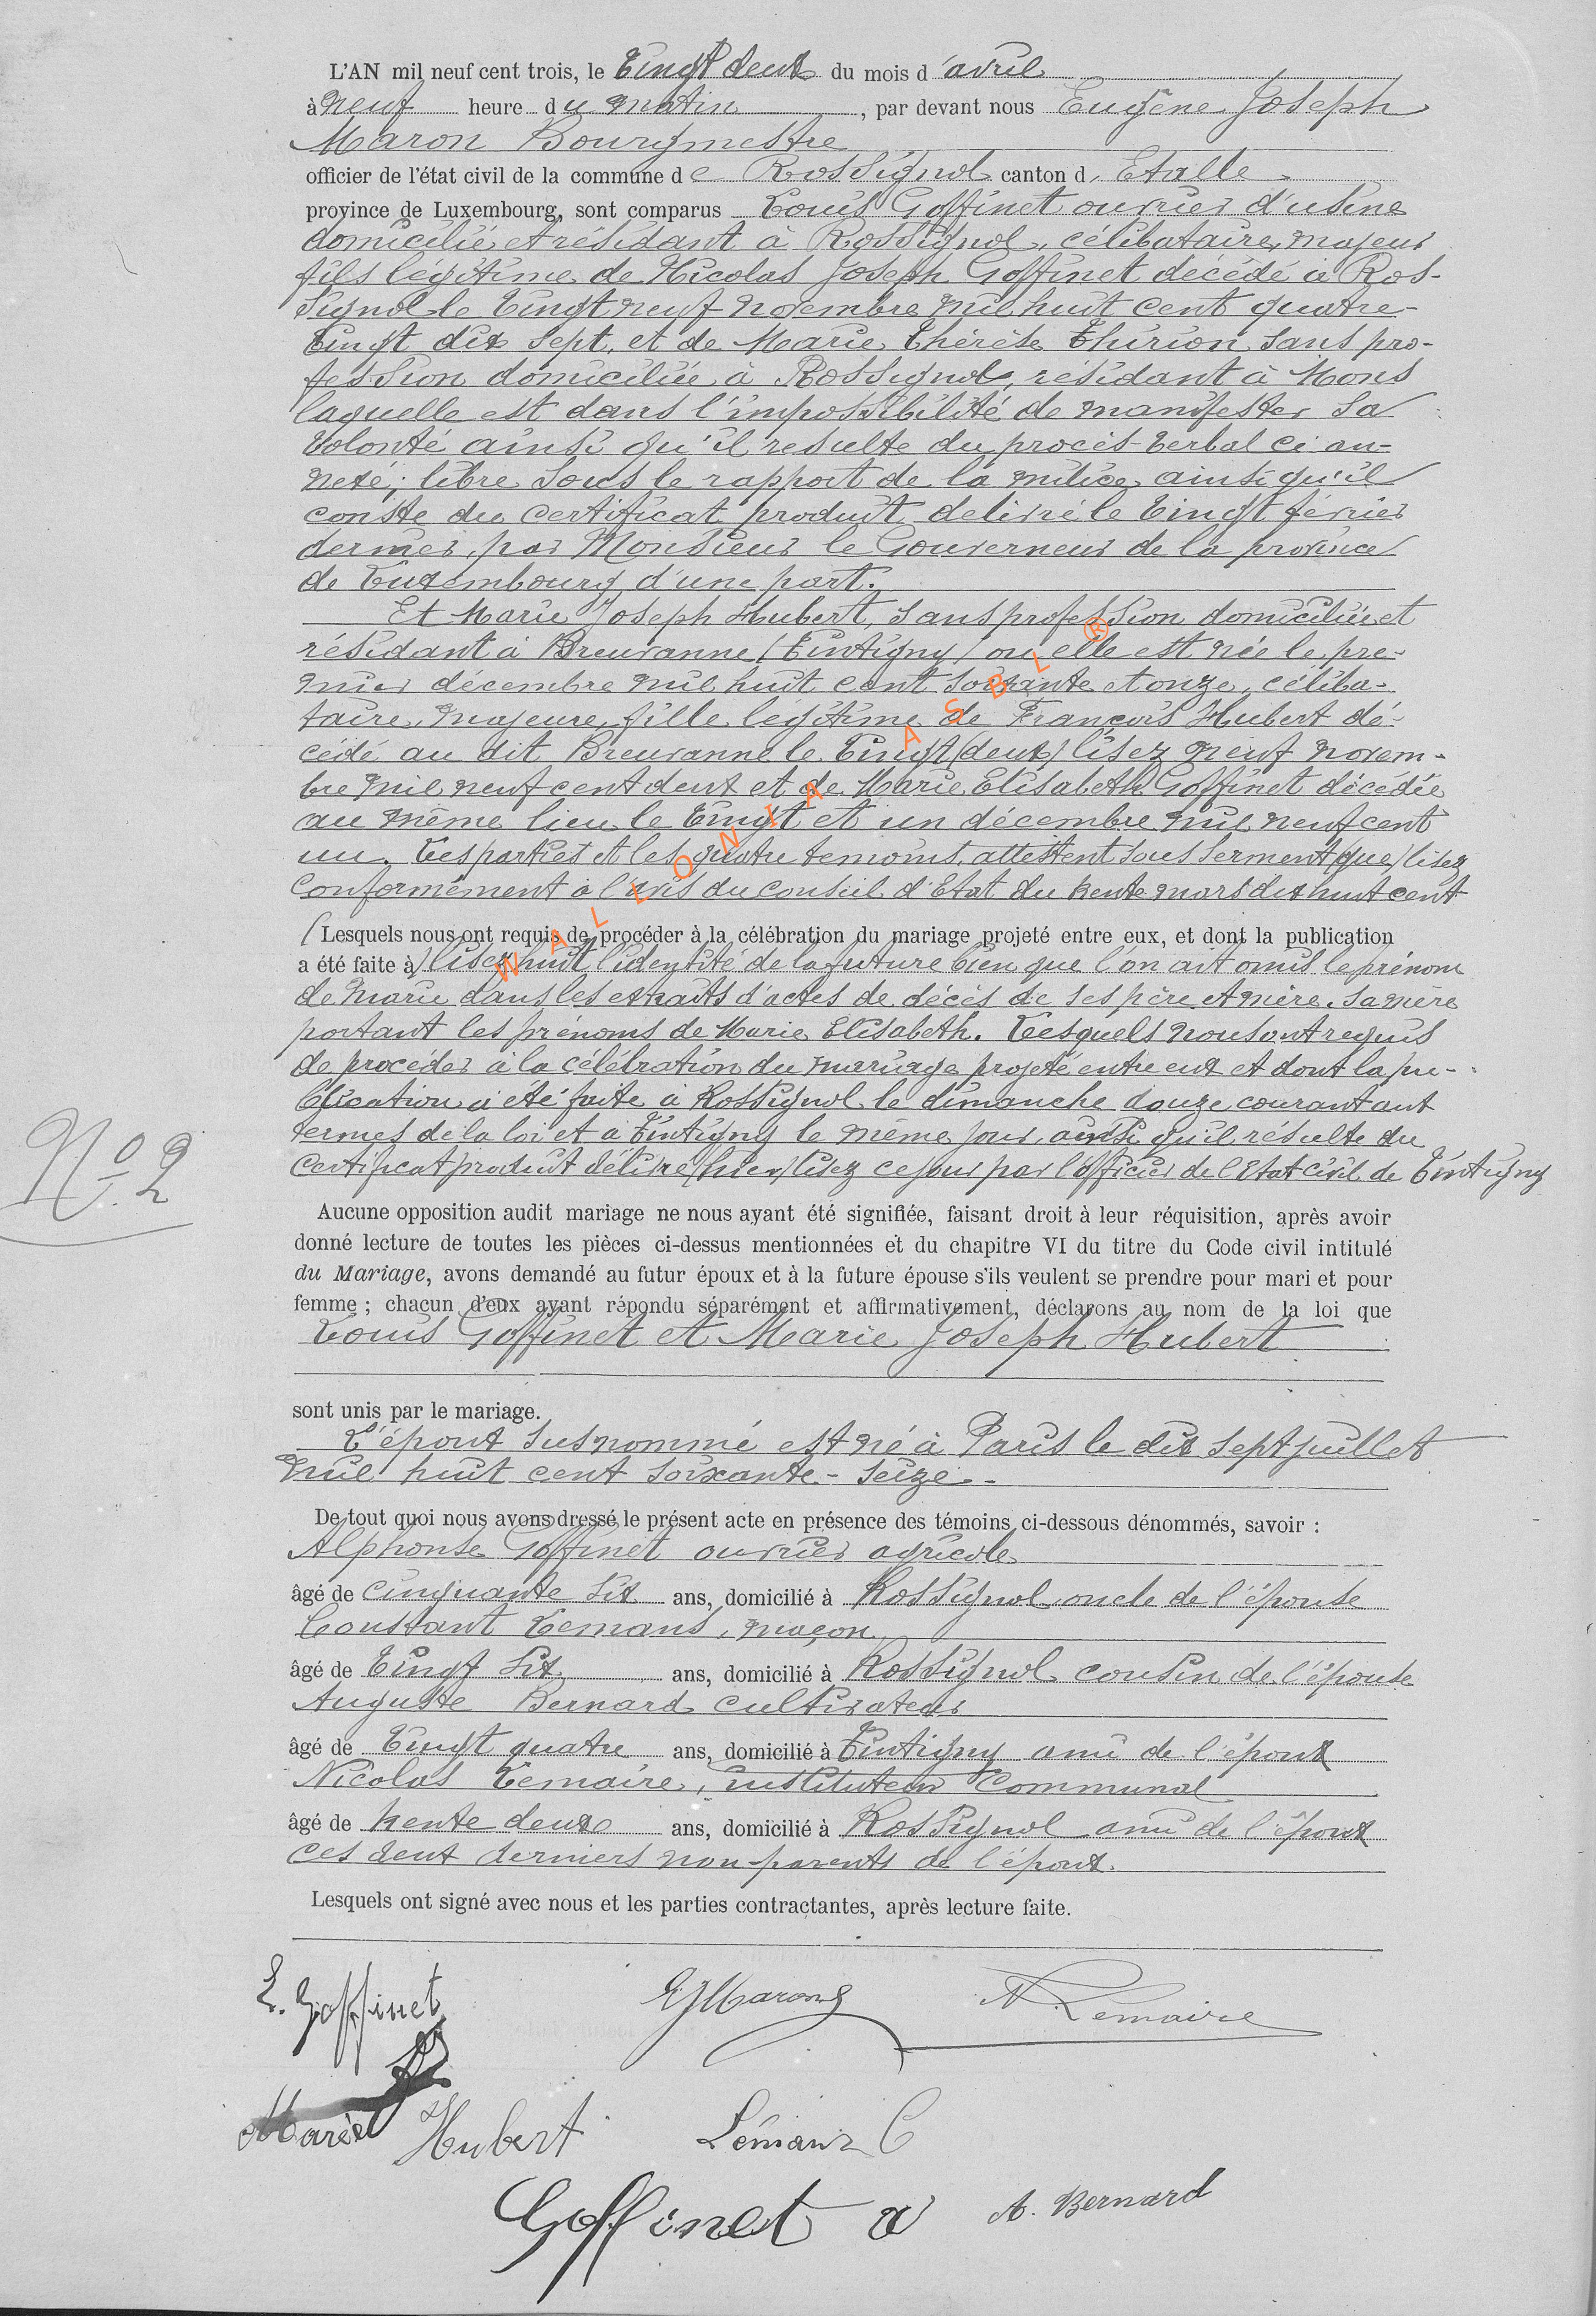 L'AN mil neuf cent trois, le Vingt deux du mois d'avril
à neuf heure du matin, par devant nous Eugène Joseph
Maron Bourgmestre
officier de l'état civil de la commune de Rossignol canton d'Etalle
province de Luxembourg, sont comparus Louis Goffinet ouvrier d'usine
domicilié et résidant à Rossignol, célibataire, majeur
fils légitime de Nicolas Joseph Goffinet décédé à Ros-
signol le vingt neuf novembre mil huit cent quatre-
vingt dix sept, et de Marie Thérèse Thirion sans pro-
fession domiciliée à Rossignol, résidant à Mons
laquelle est dans l'impossibilité de manifester sa
volonté ainsi qu'il resulte du procès-verbal ci an-
nexé; libre sous le rapport de la milice ainsi qu'il
conste du certificat produit delivré le vingt février
dernier, par Monsieur le Gouverneur de la province
de Luxembourg d'une part.
Et Marie Joseph Hubert, sans profession domiciliée et
résidant à Breuvanne (Tintigny) ou elle est née le pre-
mier décembre mil huit cent soixante et onze, céliba-
taire, majeure, fille légitime de François Hubert dé-
cédé au dit Breuvanne le vingt (deux) lisez neuf novem-
bre mil neuf cent deux et de Marie Elisabeth Goffinet décédée
au même lieu le vingt et un décembre mil neuf cent
un. Les parties et les quatre temoins attestent sous serment (que) lisez
conformément à l'avis du conseil d'Etat du trente mars dix huit cent
(Lesquels nous ont requis de procéder à la célébration du mariage projeté entre eux, et dont la publication
a été faite à) lisez huit l'identité de la future bien que l'on ait omis le prénom
de Marie dans les extraits d'actes de décès de ses père et mère. sa mère
portant les prénoms de Marie Elisabeth. Lesquels nous ont requis
de procéder à la célébration du mariage projeté entre eux et dont la pu-
blication a été faite à Rossignol le dimanche douze courant aux
termes de la loi et à Tintigny le même jour, ainsi qu'il résulte du
certificat produit délivré (hier) lisez ce jour par l'officier de l'Etat civil de Tintigny
N° 2
Aucune opposition audit mariage ne nous ayant été signifiée, faisant droit à leur réquisition, après avoir
donné lecture de toutes les pièces ci-dessus mentionnées et du chapitre VI du titre du Code civil intitulé
du Mariage, avons demandé au futur époux et à la future épouse s'ils veulent se prendre pour mari et pour
femme ; chacun d'eux ayant répondu séparément et affirmativement, déclarons au nom de la loi que
Louis Goffinet et Marie Joseph Hubert
sont unis par le mariage.
L'époux susnommé est né à Paris le dix sept juillet
mil huit cent soixante-seize.-
De tout quoi nous avons dressé le présent acte en présence des témoins ci-dessous dénommés, savoir :
Alphonse Goffinet ouvrier agricole
âgé de cinquante six ans, domicilié à Rossignol oncle de l'épouse
Constant Lemans, maçon
âgé de Vingt six ans, domicilié à Rossignol cousin de l'épouse
Auguste Bernard cultivateur
âgé de Vingt quatre ans, domicilié à Tintigny ami de l'époux
Nicolas Lemaire, instituteur communal
âgé de trente deux ans, domicilié à Rossignol ami de l'époux
ces deux derniers non-parents de l'époux.
Lesquels ont signé avec nous et les parties contractantes, après lecture faite.
L. Goffinet EJ Maron N. Lemaire
Marie Hubert Lémans C
Goffinet a A. Bernard
WALLONIA ASBL ®